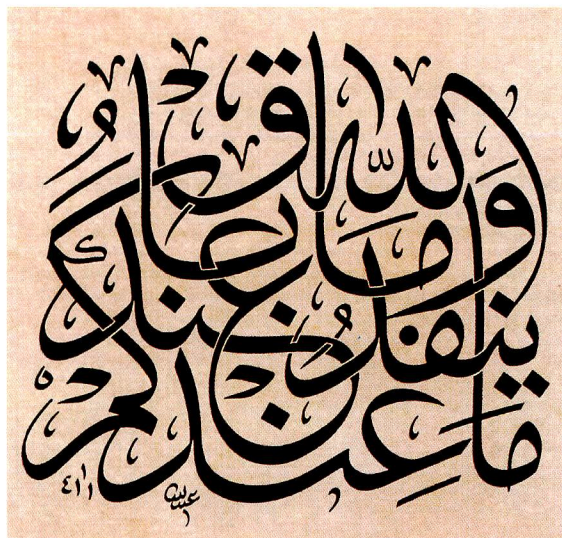 ما عندكم ينفد
وما عند الله باق